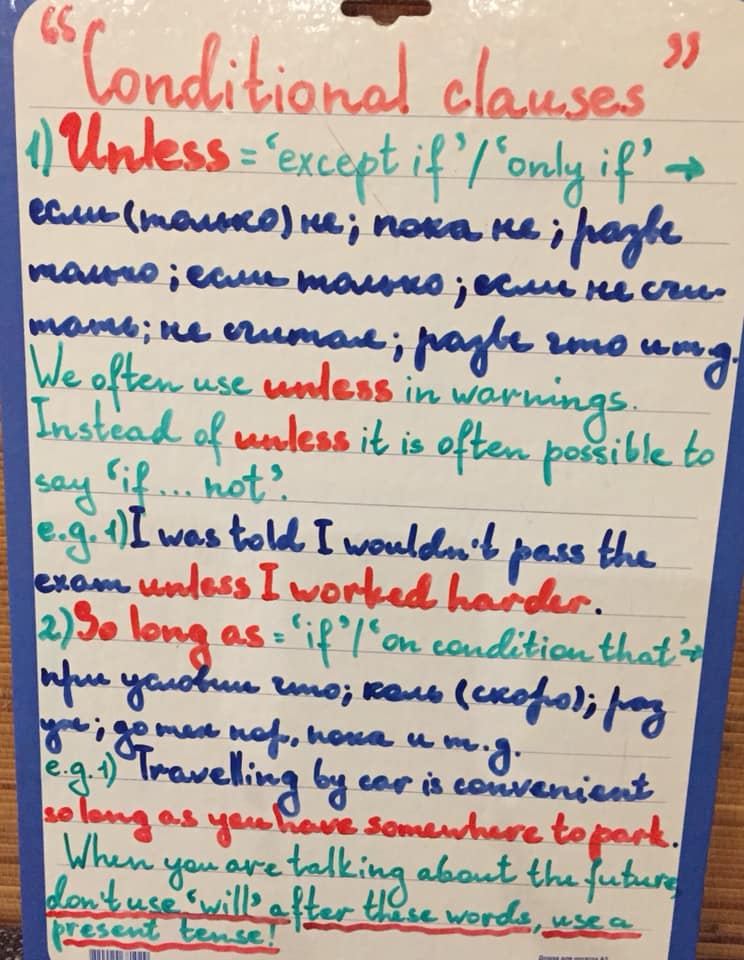 “Conditional clauses”
1) Unless = ‘except if’/‘only if’ →
если (только) не; пока не; разве
только; если только; если не счи-
тать; не считая; разве что и т.д.
We often use unless in warnings.
Instead of unless it is often possible to
say ‘if ... not’.
e.g. 1) I was told I wouldn't pass the
exam unless I worked harder.
2) So long as = ‘if’/‘on condition that’ →
при условии что; коль (скоро); раз
уж; до тех пор, пока и т.д.
e.g. 1) Travelling by car is convenient
so long as you have somewhere to park.
When you are talking about the future,
don't use ‘will’ after these words, use a
present tense!